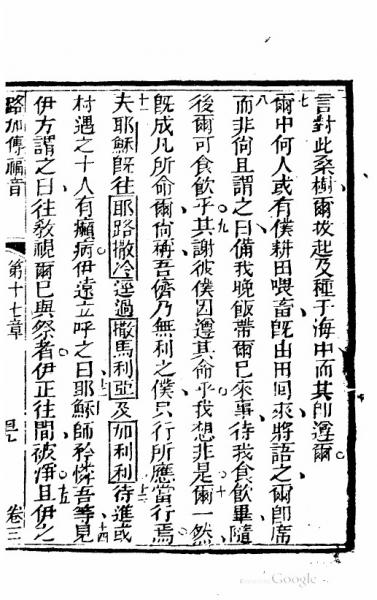 言對此桑樹爾拔起及種于海中而其即遵爾
七爾中何人或有僕耕田喂畜既由田囘來將語之爾即席
八而非尙且謂之曰備我晚飯帶爾己來事待我食飲畢隨
後爾可食飲乎九其謝彼僕因遵其命乎我想非是十爾一然
既成凡所命爾尙稱吾儕乃無利之僕只行所應當行焉
十一夫耶穌既往耶路撒冷逕過撒馬利亞及加利利十二待進或
村遇之十人有癩病伊遠立十三呼之曰耶穌師矜憐吾等十四見
伊方謂之曰往敎視爾己與祭者伊正往間被淨且十五伊之
路加傳福音
第十七章
卷三
Google